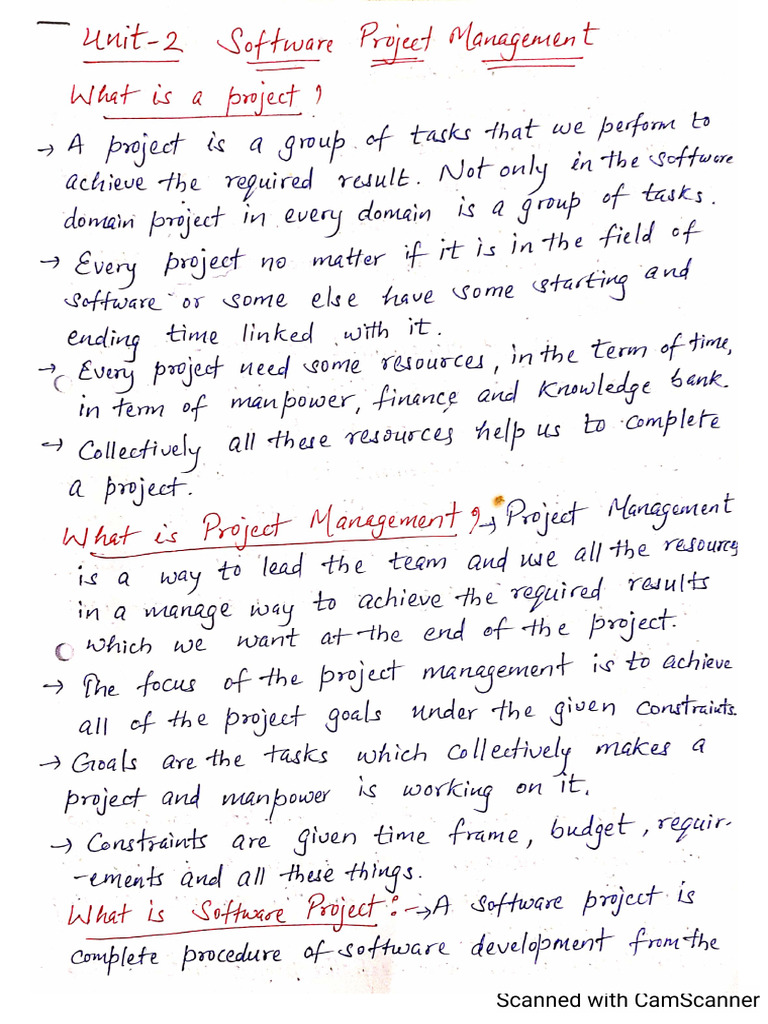 Unit-2 Software Project Management
What is a project?
→ A project is a group of tasks that we perform to
achieve the required result. Not only in the software
domain project in every domain is a group of tasks.
→ Every project no matter if it is in the field of
software or some else have some starting and
ending time linked with it.
→ Every project need some resources, in the term of time,
in term of manpower, finance and knowledge bank.
→ Collectively all these resources help us to complete
a project.
What is Project Management? → Project Management
is a way to lead the team and use all the resources
in a manage way to achieve the required results
which we want at the end of the project.
→ The focus of the project management is to achieve
all of the project goals under the given constraints.
→ Goals are the tasks which collectively makes a
project and manpower is working on it.
→ Constraints are given time frame, budget, requir-
-ements and all these things.
What is Software Project:- → A software project is
complete procedure of software development from the
Scanned with CamScanner